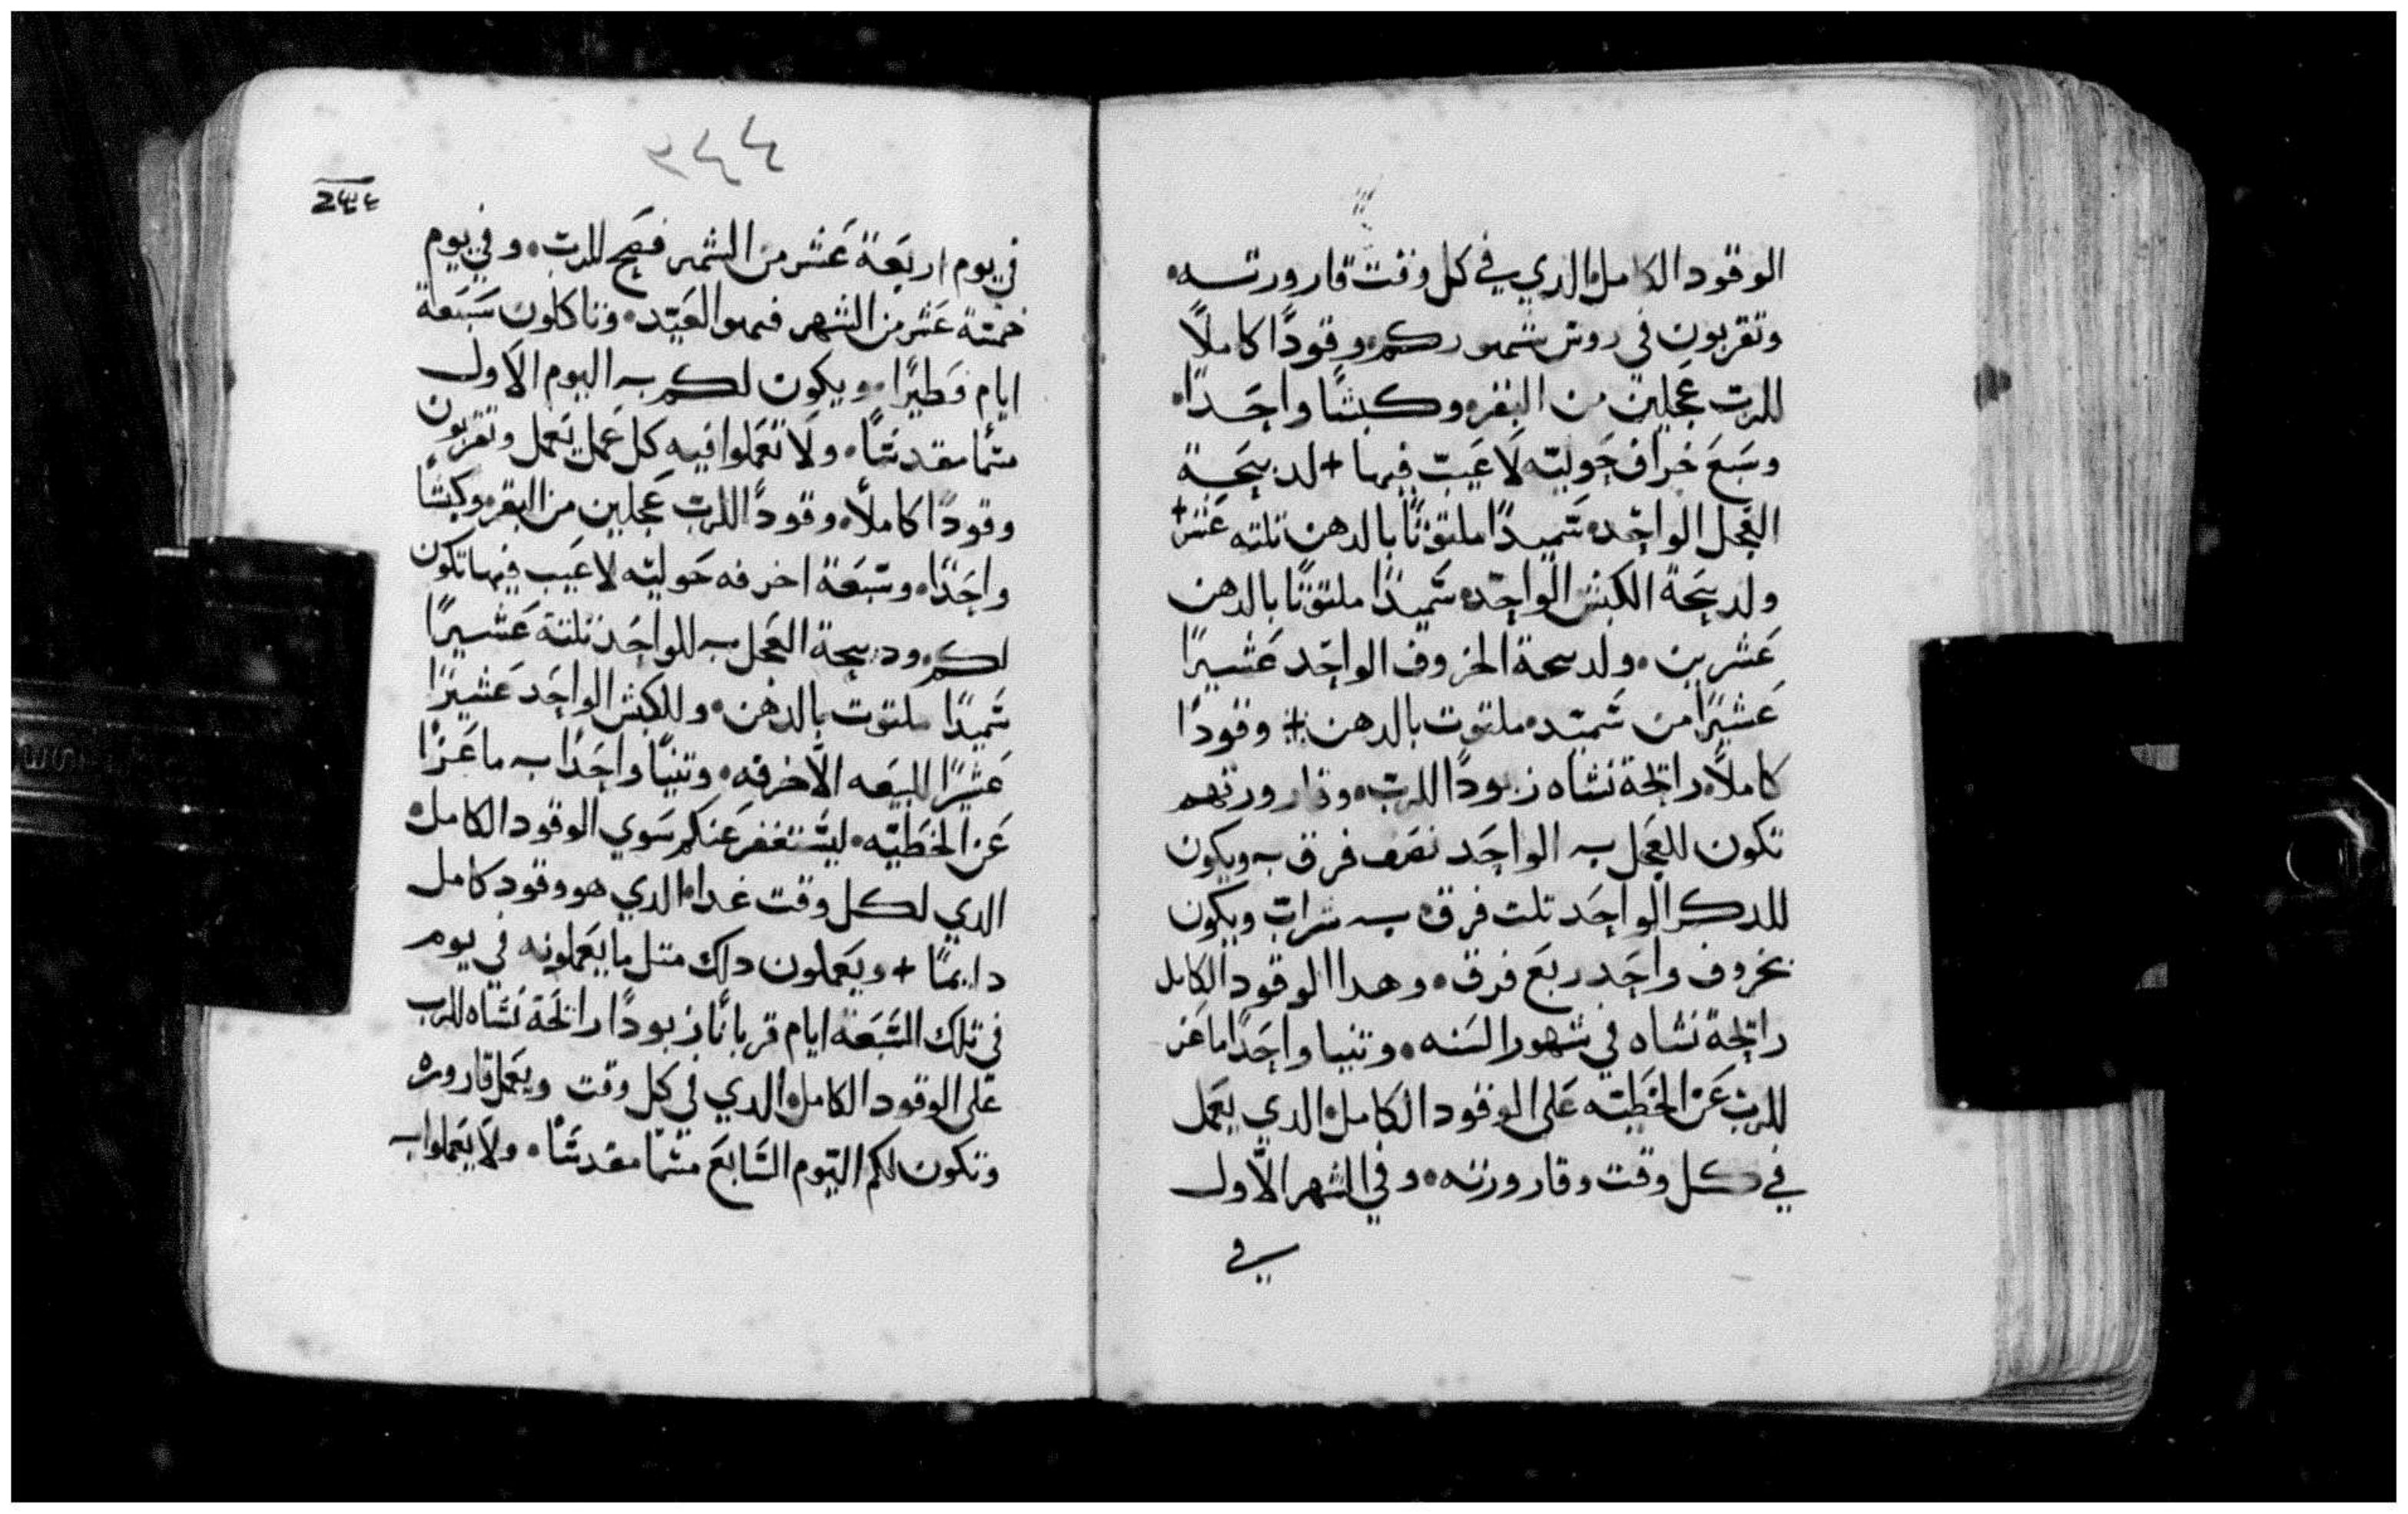 الوقود الكامل الدي في كل وقت قارورته
وتقربون في روس شهوركم وقودًا كاملًا
للرب عجلين من البقر وكبشًا واحدًا
وسبع خراف حوليه لا عيب فيها + لدبيحة
العجل الواحد سميدًا ملتوتًا بالدهن تلته عشر +
ولدبيحة الكبش الواحد سميدًا ملتوتًا بالدهن
عشرين ولدبيحة الخروف الواحد عشيرًا
عشيرًا من سميد ملتوت بالدهن + وقودًا
كاملًا رايحة نشاه زبودًا للرب وقارورتهم
تكون للعجل الواحد نصف فرق ويكون
للدكر الواحد تلت فرق شراب ويكون
بخروف واحد ربع فرق وهدا الوقود الكامل
رايحة نشاه في شهور السنه وتنيا واحدًا ماعز
للرب عن الخطيه على الوقود الكامل الدي يعمل
في كل وقت وقارورته وفي الشهر الاول
في
٢٤٤
في يوم اربعة عشر من الشهر فصح للرب وفي يوم
خمسة عشر من الشهر فهو العيد وتاكلون سبعة
ايام فطيرًا ويكون لكم اليوم الاول
مسمًا مقدسًا ولا تعملوا فيه كل عمل يعمل وتقربون
وقودًا كاملًا وقودًا للرب عجلين من البقر وكبشًا
واحدًا وسبعة اخرفه حوليه لا عيب فيها تكون
لكم ودبيحة العجل للواحد تلتة عشيرًا
سميدًا ملتوت بالدهن وللكبش الواحد عشيرًا
عشيرًا للسبعه الاخرفه وتنيًا واحدًا ماعزًا
عن الخطيه ليستغفر عنكم سوي الوقود الكامل
الدي لكل وقت غداه الدي هو وقود كامل
دايمًا + ويعملون دلك متل ما يعملونه في يوم
في تلك السبعة ايام قربانًا زبودًا رايحة نشاه للرب
على الوقود الكامل الدي في كل وقت ويعمل قاروره
وتكون لكم اليوم السابع مسمًا مقدسًا ولا يعملوا